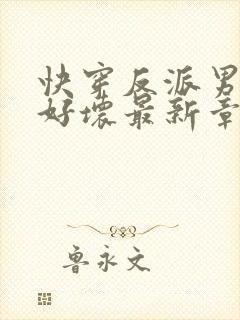 快穿反派男
好坏最新章
鲁永文